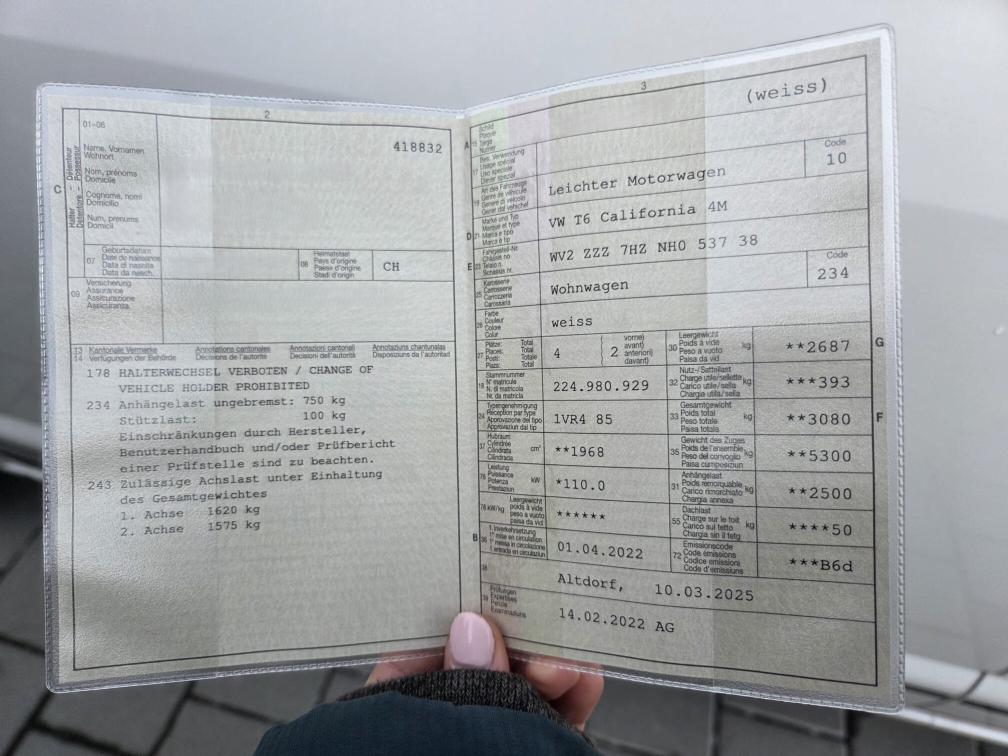 2
01-06
418832
C
Halter - Détenteur
Detentore - Possessur
Name, Vornamen
Wohnort
Nom, prénoms
Domicile
Cognome, nomi
Domicilio
Num, prenums
Domicil
07
Geburtsdatum
Date de naissance
Data di nascita
Data da nasch.
08
Heimatstaat
Pays d'origine
Paese d'origine
Stadi d'origin
CH
09
Versicherung
Assurance
Assicurazione
Assicuranza
13
14
Kantonale Vermerke
Verfügungen der Behörde
Annotations cantonales
Décisions de l'autorité
Annotazioni cantonali
Decisioni dell'autorità
Annotaziuns chantunalas
Disposiziuns da l'autoritad
178 HALTERWECHSEL VERBOTEN / CHANGE OF
VEHICLE HOLDER PROHIBITED
234 Anhängelast ungebremst: 750 kg
Stützlast: 100 kg
Einschränkungen durch Hersteller,
Benutzerhandbuch und/oder Prüfbericht
einer Prüfstelle sind zu beachten.
243 Zulässige Achslast unter Einhaltung
des Gesamtgewichtes
1. Achse 1620 kg
2. Achse 1575 kg
3
A
15
Schild
Plaque
Targa
Numer
(weiss)
17
Bes. Verwendung
Usage spécial
Uso speciale
Diever spezial
19
Art des Fahrzeugs
Genre de véhicule
Genere di veicolo
Gener dal vehichel
Leichter Motorwagen
Code
10
D
21
Marke und Typ
Marque et type
Marca e tipo
Marca e tip
VW T6 California 4M
E
23
Fahrgestell-Nr.
Châssis no
Telaio n.
Schassis nr.
WV2 ZZZ 7HZ NH0 537 38
25
Karosserie
Carrosserie
Carrozzeria
Carossaria
Wohnwagen
Code
234
26
Farbe
Couleur
Colore
Colur
weiss
27
Plätze: Total
Places: Total
Posti: Totale
Plazs: Total
4
2
vorne)
avant)
anteriori)
davant)
30
Leergewicht
Poids à vide
Peso a vuoto
Paisa da vid
kg
**2687
G
18
Stammnummer
N° matricule
N. di matricola
Nr. da matricla
224.980.929
32
Nutz-/Sattellast
Charge utile/sellette
Carico utile/sella
Chargia utila/sella
kg
***393
24
Typengenehmigung
Réception par type
Approvazione del tipo
Approvaziun dal tip
1VR4 85
33
Gesamtgewicht
Poids total
Peso totale
Paisa totala
kg
**3080
F
37
Hubraum
Cylindrée
Cilindrata
Cilindrada
cm³
**1968
35
Gewicht des Zuges
Poids de l'ensemble
Peso del convoglio
Paisa cumposiziun
kg
**5300
76
Leistung
Puissance
Potenza
Prestaziun
kW
*110.0
31
Anhängelast
Poids remorquable
Carico rimorchiato
Chargia annexa
kg
**2500
78 kW/kg
Leergewicht
poids à vide
peso a vuoto
paisa da vid
******
55
Dachlast
Charge sur le toit
Carico sul tetto
Chargia sin il tetg
kg
****50
B
36
1. Inverkehrsetzung
1re mise en circulation
1a messa in circolazione
1. entrada en circulaziun
01.04.2022
72
Emissionscode
Code émissions
Codice emissioni
Code d'emissiuns
***B6d
38
Altdorf, 10.03.2025
39
Prüfungen
Expertises
Perizie
Examinaziuns
14.02.2022 AG